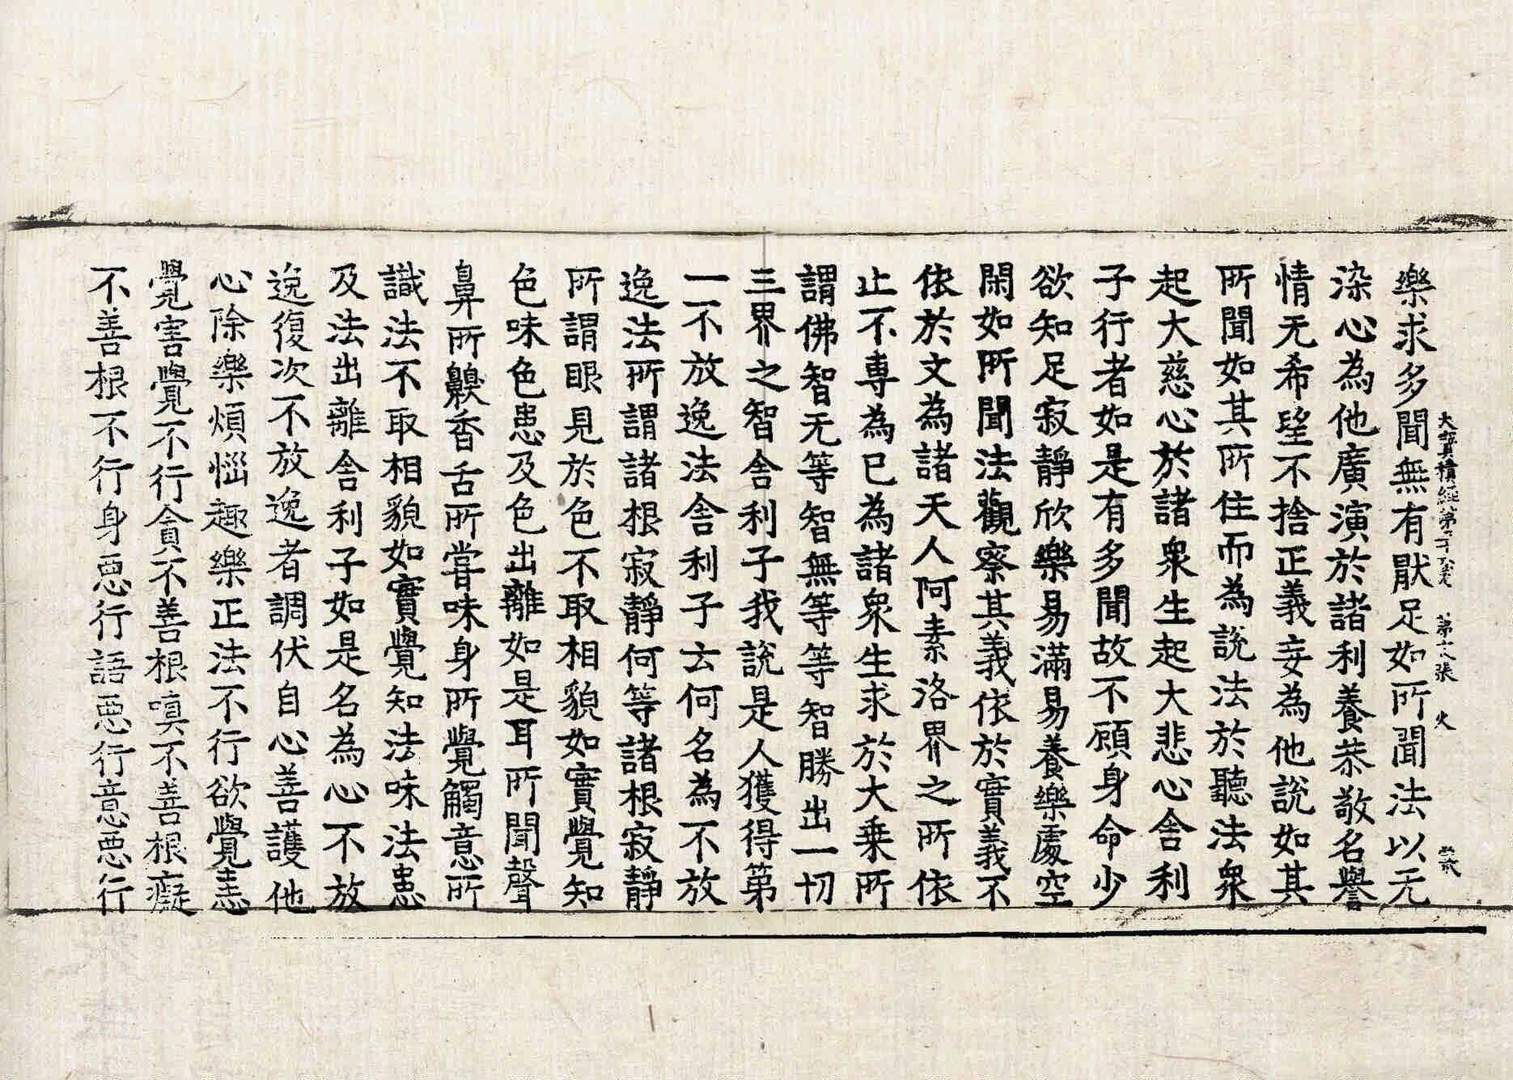 大寶積經第 第十八張 火
樂求多聞無有猒足如所聞法以无
染心為他廣演於諸利養恭敬名譽
情无希望不捨正義妄為他說如其
所聞如其所住而為說法於聽法衆
起大慈心於諸衆生起大悲心舍利
子行者如是有多聞故不顧身命少
欲知足寂靜欣樂易滿易養樂處空
閑如所聞法觀察其義依於實義不
依於文為諸天人阿素洛界之所依
止不專為已為諸衆生求於大乗所
謂佛智无等智無等等智勝出一切
三界之智舍利子我說是人獲得第
一不放逸法舍利子云何名為不放
逸法所謂諸根寂靜何等諸根寂靜
所謂眼見於色不取相貌如實覺知
色味色患及色出離如是耳所聞聲
鼻所齅香舌所甞味身所覺觸意所
識法不取相貌如實覺知法味法患
及法出離舍利子如是名為心不放
逸復次不放逸者調伏自心善護他
心除樂煩惱趣樂正法不行欲覺恚
覺害覺不行貪不善根嗔不善根癡
不善根不行身惡行語惡行意惡行